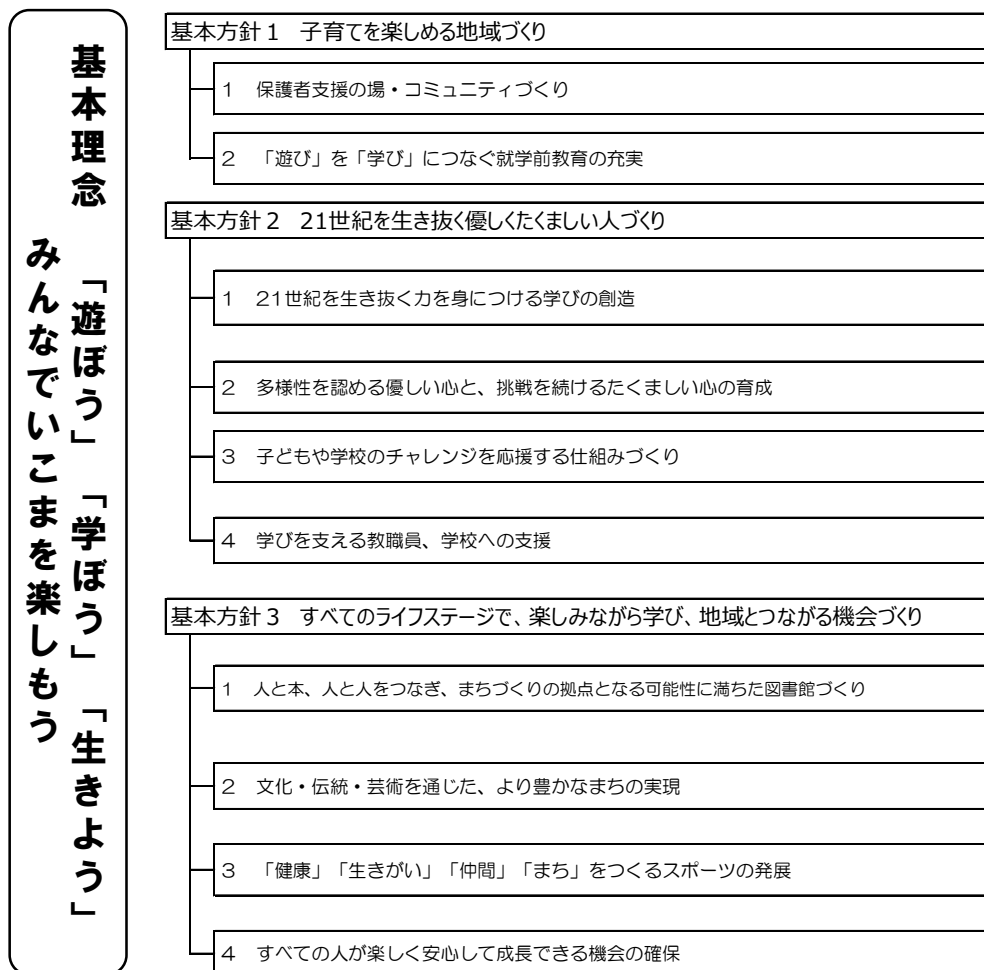 基本理念 「遊ぼう」「学ぼう」「生きよう」
みんなでいこまを楽しもう
基本方針1 子育てを楽しめる地域づくり
1 保護者支援の場・コミュニティづくり
2 「遊び」を「学び」につなぐ就学前教育の充実
基本方針2 21世紀を生き抜く優しくたくましい人づくり
1 21世紀を生き抜く力を身につける学びの創造
2 多様性を認める優しい心と、挑戦を続けるたくましい心の育成
3 子どもや学校のチャレンジを応援する仕組みづくり
4 学びを支える教職員、学校への支援
基本方針3 すべてのライフステージで、楽しみながら学び、地域とつながる機会づくり
1 人と本、人と人をつなぎ、まちづくりの拠点となる可能性に満ちた図書館づくり
2 文化・伝統・芸術を通じた、より豊かなまちの実現
3 「健康」「生きがい」「仲間」「まち」をつくるスポーツの発展
4 すべての人が楽しく安心して成長できる機会の確保